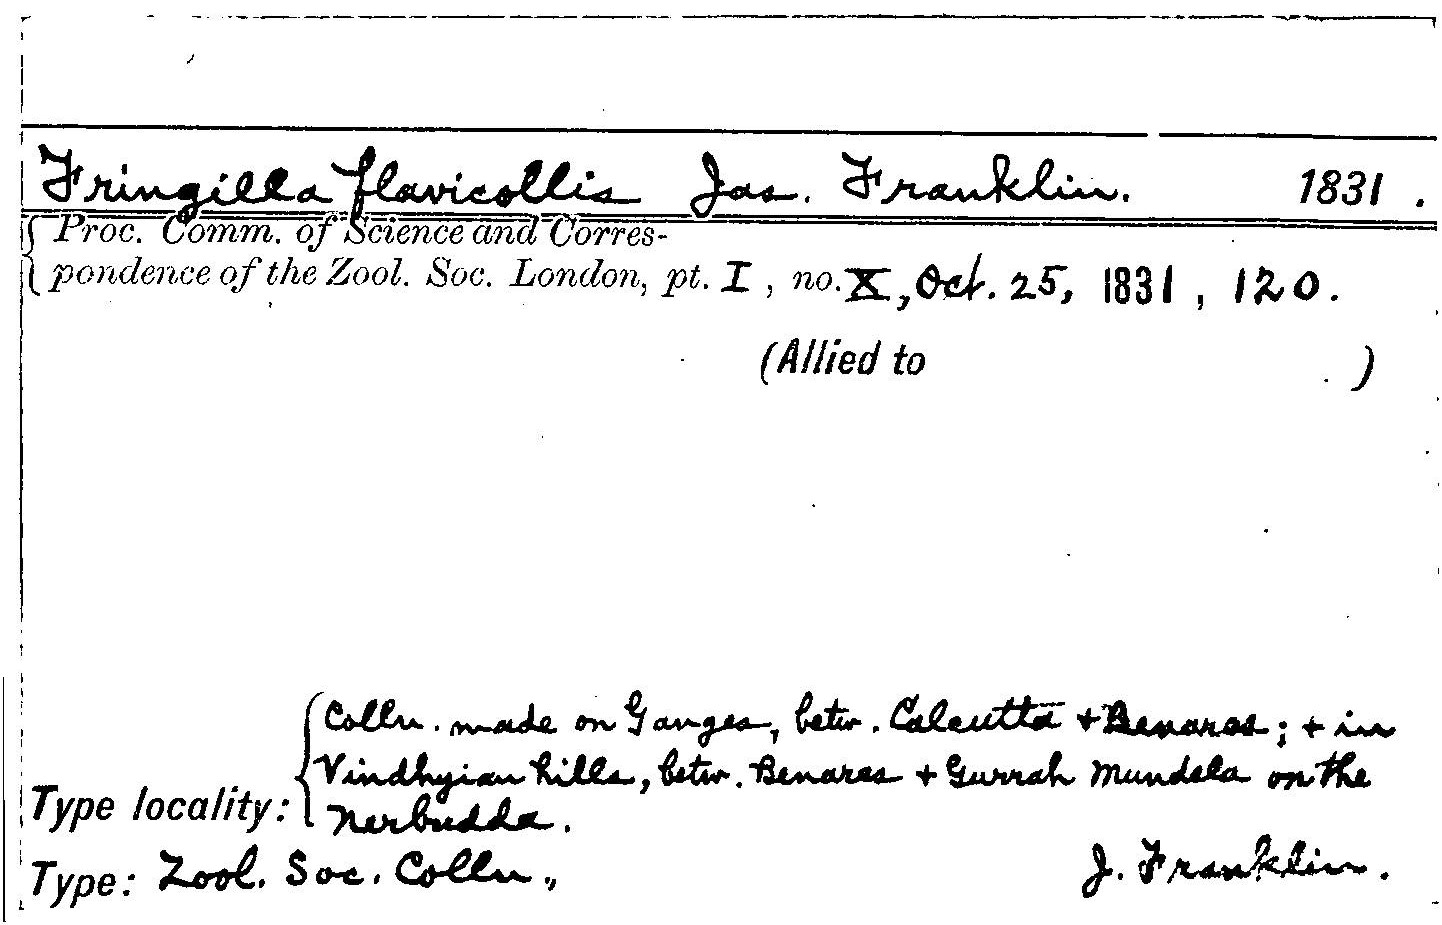 Fringilla flavicollis Jas. Franklin. 1831.
Proc. Comm. of Science and Corres-
pondence of the Zool. Soc. London, pt. I, no. X, Oct. 25, 1831, 120.
(Allied to )
Colln. made on Ganges, betw. Calcutta + Benares; + in
Vindhyian hills, betw. Benares + Gurrah Mundela on the
Type locality: Nerbudda.
Type: Zool. Soc. Colln., J. Franklin.